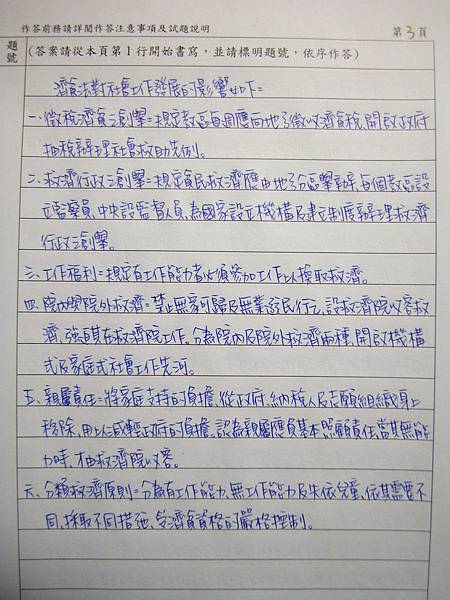 作答前務請詳閱作答注意事項及試題說明
第3頁
題號
(答案請從本頁第1行開始書寫,並請標明題號,依序作答)
濟貧法對社會工作發展的影響如下:
一、徵稅濟貧之創舉:規定教區每週應向地方徵收濟貧稅,開啟政府
抽稅辦理社會救助先例。
二、救濟行政之創舉:規定貧民救濟應由地方分區舉辦,每個教區設
立監察員,中央設監督人員,為國家設立機構及建立制度辦理救濟
行政之創舉。
三、工作福利:規定有工作能力者必須參加工作以換取救濟。
四、院內與院外救濟:禁止無家可歸及無業遊民行乞,設救濟院收容救
濟,強迫其在救濟院工作。分為院內及院外救濟兩種,開啟機構
式及家庭式社會工作先河。
五、親屬責任:將家庭支持的負擔,從政府、納稅人及志願組織身上
移除,用以減輕政府的負擔。認為親屬應負基本照顧責任,當其無能
力時,由救濟院收容。
六、分類救濟原則:分為有工作能力、無工作能力及失依兒童,依其需要不
同,採取不同措施,受濟貧資格的嚴格控制。